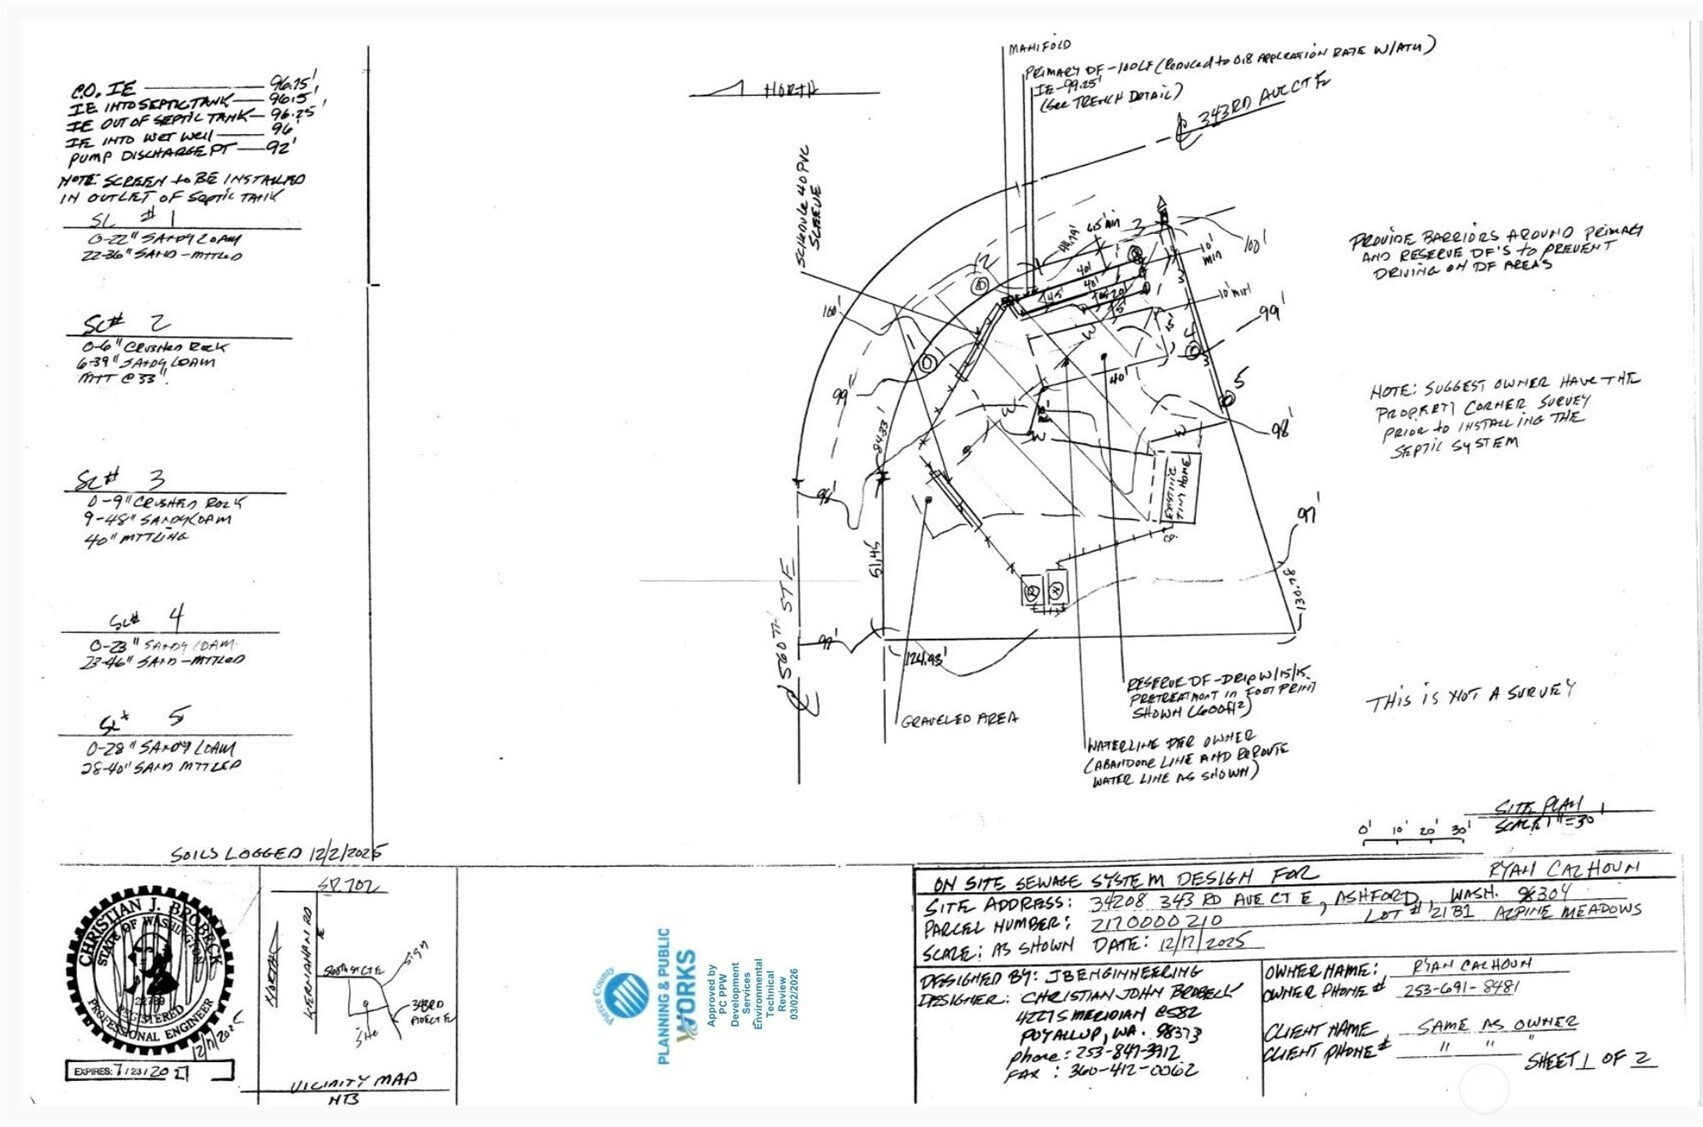 C.O. IE — 96.75'
IE INTO SEPTIC TANK — 96.5'
IE OUT OF SEPTIC TANK — 96.25'
IE INTO WET WELL — 96'
PUMP DISCHARGE PT — 92'
NOTE: SCREEN TO BE INSTALLED
IN OUTLET OF SEPTIC TANK
SL # 1
0-22" SANDY LOAM
22-36" SAND - MTTLED
SL# 2
0-6" CRUSHED ROCK
6-39" SANDY LOAM
MTT @ 33"
SL# 3
0-9" CRUSHED ROCK
9-48" SANDY LOAM
40" MTTLING
SL# 4
0-23" SANDY LOAM
23-46" SAND - MTTLED
SL# 5
0-28" SANDY LOAM
28-40" SAND MTTLED
SOILS LOGGED 12/2/2025
NORTH
MANIFOLD
PRIMARY DF - 100LF (REDUCED TO 0.8 APPLICATION RATE W/ATU)
IE - 99.25'
(SEE TRENCH DETAIL)
343RD AVE CT E
SCHEDULE 40 PVC
SLEEVE
100'
100'
10' MIN
10' MIN
99'
99'
98'
98'
97'
97'
2
3
4
5
40'
40'
40'
84.33'
51.45
130.28'
124.93'
EXISTING
TINY HOME
560TH ST E
GRAVELED AREA
RESERVE DF - DRIP W/15/15
PRETREATMENT IN FOOTPRINT
SHOWN (600ft²)
WATERLINE PER OWNER
(ABANDONE LINE AND REROUTE
WATER LINE AS SHOWN)
PROVIDE BARRIORS AROUND PRIMARY
AND RESERVE DF'S TO PREVENT
DRIVING ON DF AREAS
NOTE: SUGGEST OWNER HAVE THE
PROPERTY CORNER SURVEY
PRIOR TO INSTALLING THE
SEPTIC SYSTEM
THIS IS NOT A SURVEY
SITE PLAN
SCALE 1"=30'
0' 10' 20' 30'
CHRISTIAN J. BROBECK
STATE OF WASHINGTON
22789
REGISTERED
PROFESSIONAL ENGINEER
12/17/2025
EXPIRES: 7/23/2027
SR 702
NORTH
KERNAHAN RD
E
560TH ST CT E
SIGN
343RD
AVE CT E
SITE
VICINITY MAP
NTS
Pierce County
PLANNING & PUBLIC
WORKS
Approved by
PC PPW
Development
Services
Environmental
Technical
Review
03/02/2026
ON SITE SEWAGE SYSTEM DESIGN FOR RYAN CALHOUN
SITE ADDRESS: 34208 343 RD AVE CT E, ASHFORD, WASH. 98304
PARCEL NUMBER: 2170000210 LOT # 21B1 ALPINE MEADOWS
SCALE: AS SHOWN DATE: 12/17/2025
DESIGNED BY: JB ENGINEERING
DESIGNER: CHRISTIAN JOHN BROBECK
4227 S MERIDIAN C582
PUYALLUP, WA. 98373
phone: 253-847-3912
FAX: 360-412-0062
OWNER NAME: RYAN CALHOUN
OWNER PHONE# 253-691-8481
CLIENT NAME SAME AS OWNER
CLIENT PHONE# " " "
SHEET 1 OF 2